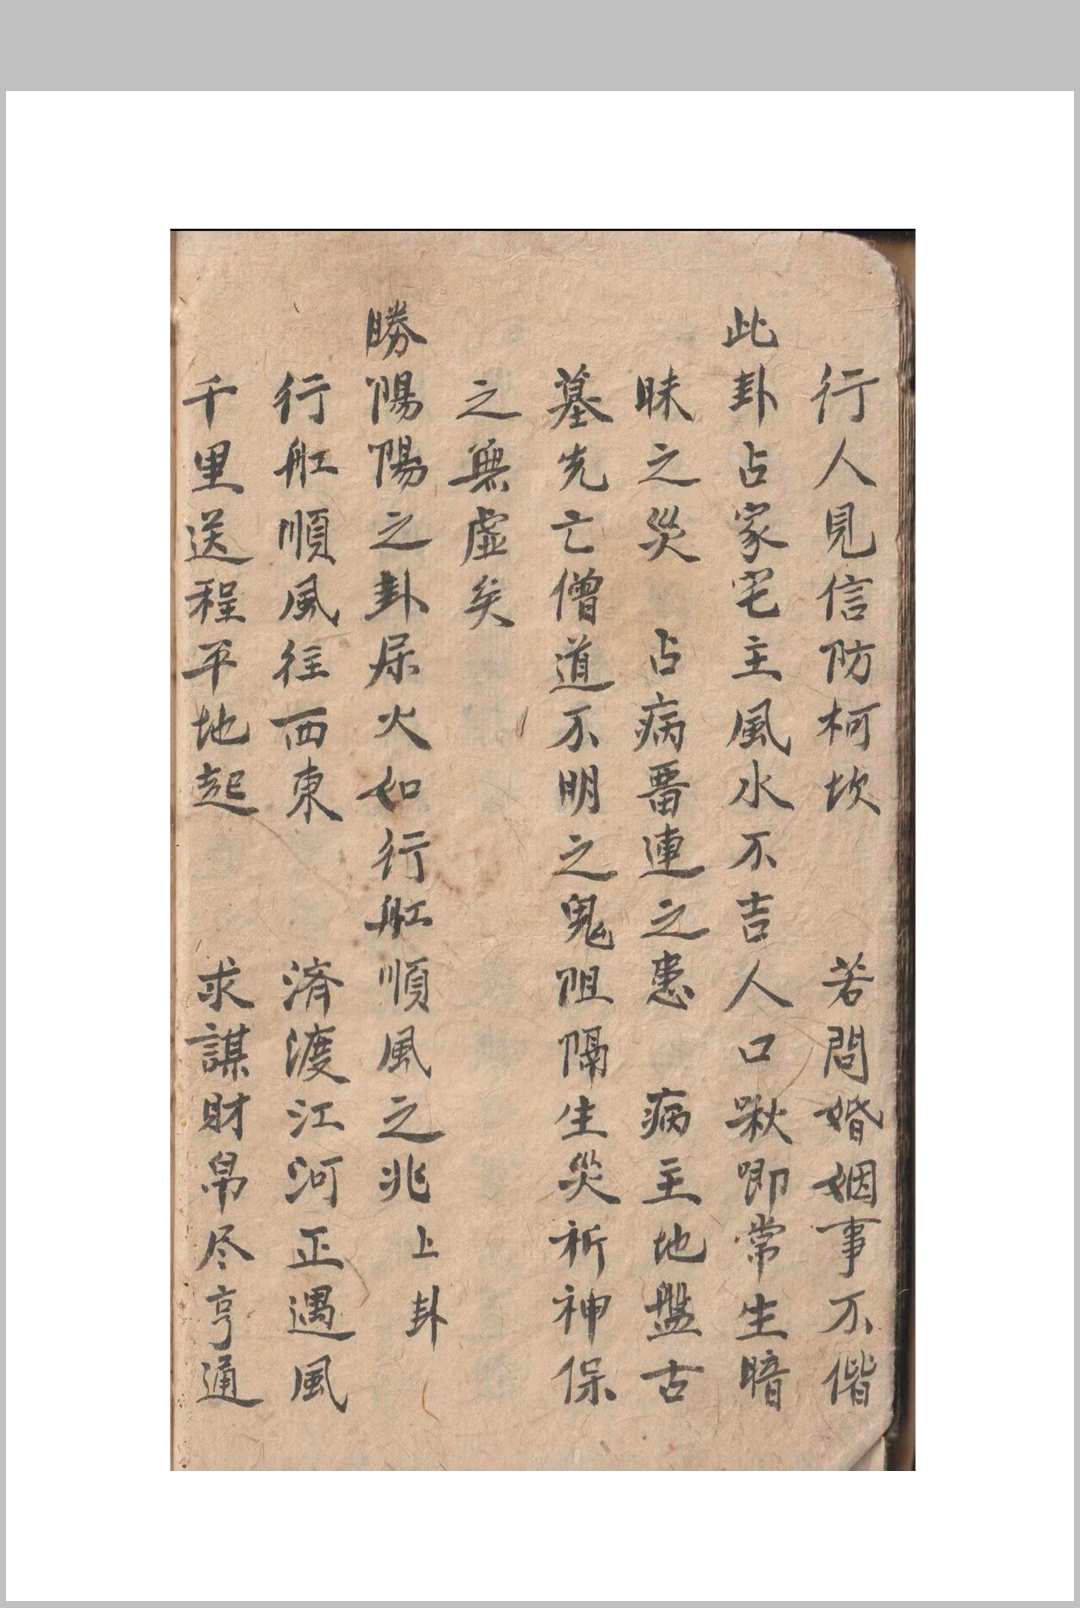 行人見信防柯坎　若問婚姻事不偕
此卦占家宅主風水不吉人口啾唧常生暗
昧之災　占病畨連之患　病主地盤古
墓先亡僧道不明之鬼阻隔生災祈神保
之無虛矣
勝陽陽之卦屎火如行舡順風之兆　上卦
行舡順風往西東　済渡江河正遇風
千里送程平地起　求謀財帛尽亨通